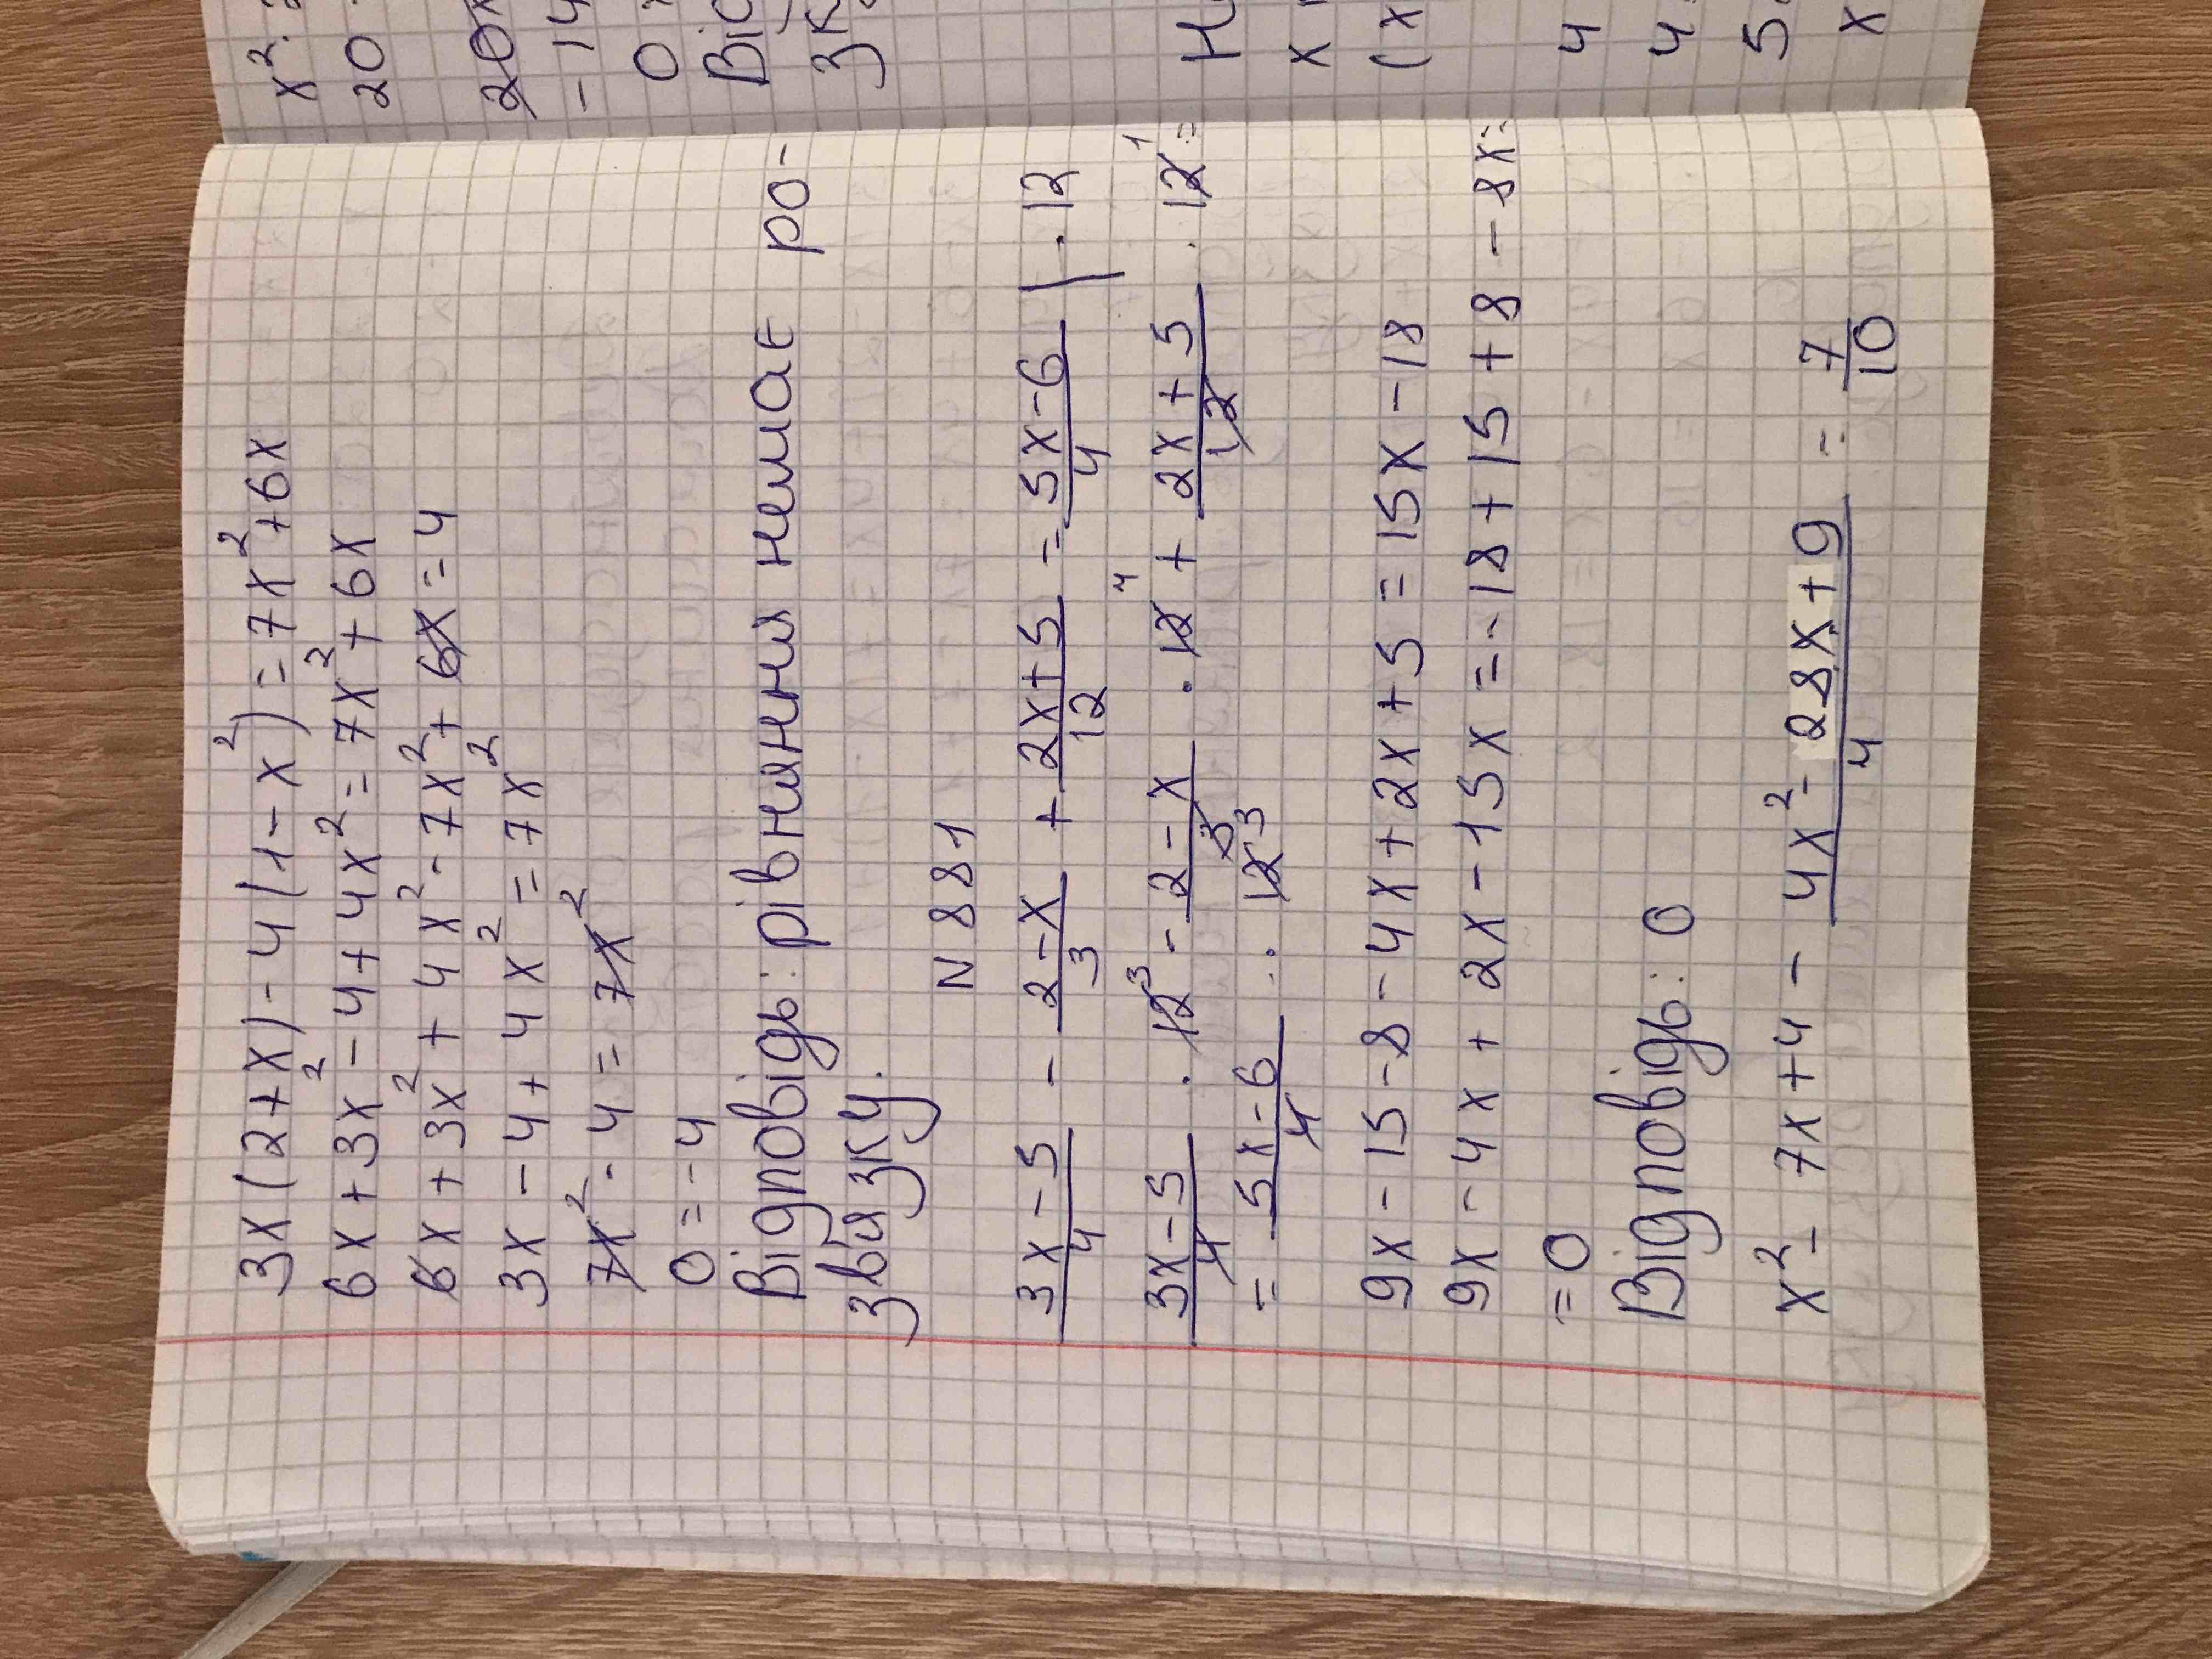 x²
20
20x
- 14
0
Від
зк
3x(2+x) - 4(1-x²) = 7x² + 6x
6x + 3x² - 4 + 4x² = 7x² + 6x
6x + 3x² + 4x² - 7x² + 6x = 4
3x - 4 + 4x² = 7x²
7x² - 4 = 7x²
0 = -4
Відповідь: рівняння немає ро-
зв'язку.
N 881
3x-5/4 - 2-x/3 + 2x+5/12 = 5x-6/4 | · 12
3x-5/4 · 12³ - 2-x/3 · 12⁴ + 2x+5/12 · 12¹ =
= 5x-6/4 · 12³
9x - 15 - 8 - 4x + 2x + 5 = 15x - 18
9x - 4x + 2x - 15x = -18 + 15 + 8 - 8x =
= 0
Відповідь: 0
x² - 7x + 4 - 4x² - 28x + 9/4 = 7/10
x
(x
4
4
5
x